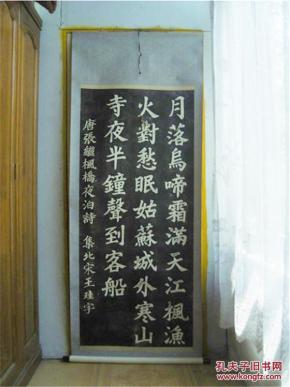 月落烏啼霜滿天江楓漁
火對愁眠姑蘇城外寒山
寺夜半鐘聲到客船
唐張繼楓橋夜泊詩 集北宋王珪字
孔夫子旧书网